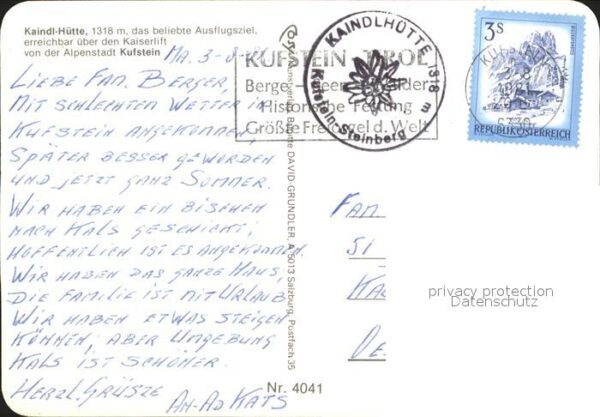 Kaindl-Hütte, 1318 m, das beliebte Ausflugsziel,
erreichbar über den Kaiserlift
von der Alpenstadt Kufstein
MA. 3-8-
LIEBE FAM. BERGER,
MIT SCHLECHTEN WETTER IN
KUFSTEIN ANGEKOMMEN,
SPÄTER BESSER GEWORDEN
UND JETZT GANZ SOMMER.
WIR HABEN EIN BISCHEN
NACH KALS GESCHICKT,
HOFFENTLICH IST ES ANGEKOMMEN.
WIR HABEN DAS GANZE HAUS,
DIE FAMILIE IST MIT URLAUB
WIR HABEN ETWAS STEIGEN
KÖNNEN, ABER UMGEBUNG
KALS IST SCHÖNER.
HERZL. GRÜSZE
AN-AD KATS
DAVID-GRÜNDLER, A 5013 Salzburg, Postfach 35
Nr. 4041
KUFSTEIN TIROL
Berge
Historische Festung
Größte Freiorgel d. Welt
KAINDLHÜTTE 1318 m
Kufstein-Steinberg
3S
REPUBLIK ÖSTERREICH
6330
FAM
SI
KA
DE
privacy protection
Datenschutz